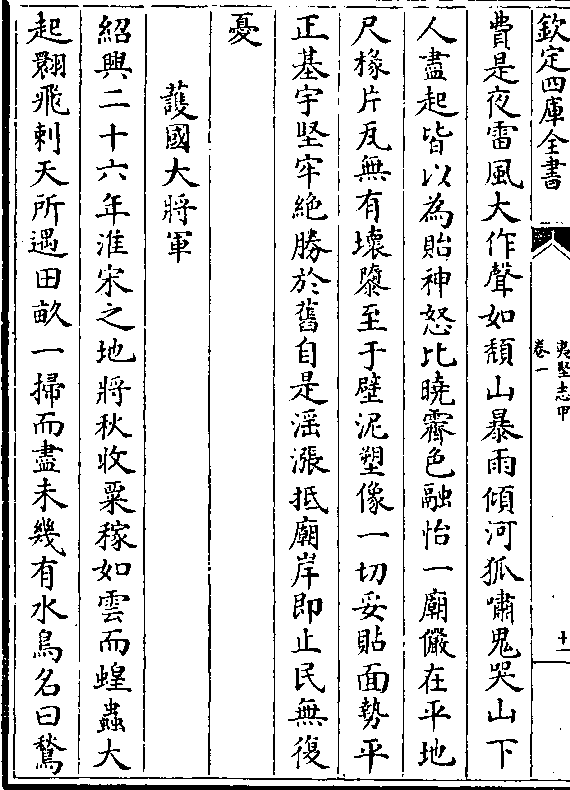 欽定四庫全書
夷堅志甲
卷一
十一
費是夜雷風大作聲如頽山暴雨傾河狐嘯鬼哭山下
人盡起皆以為貽神怒比曉霽色融怡一廟儼在平地
尺椽片瓦無有壊隳至于壁泥塑像一切妥貼面勢平
正基宇坚牢絶勝於舊自是滛漲抵廟岸即止民無復
憂
䕶國大將軍
紹興二十六年淮宋之地將秋收粟稼如雲而蝗蟲大
起翾飛刺天所遇田畝一掃而盡未幾有水鳥名曰鶖